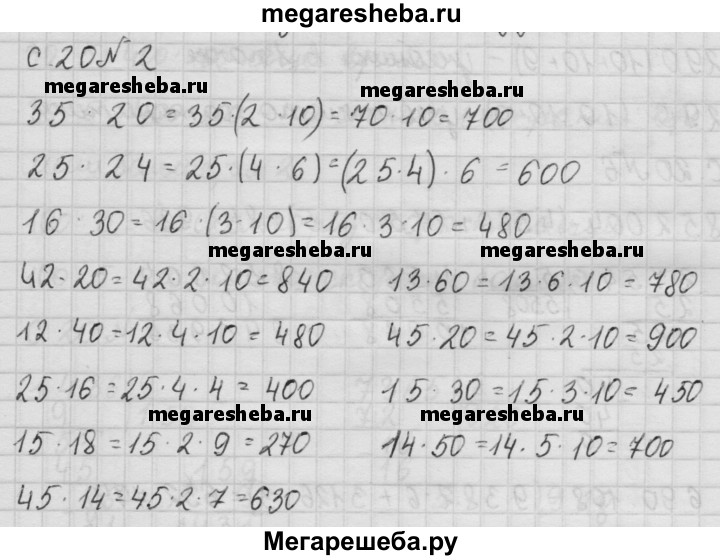 megaresheba.ru
с. 20 № 2
megaresheba.ru megaresheba.ru
35 · 20 = 35·(2 · 10) = 70·10 = 700
25 · 24 = 25·(4 · 6) = (25·4) · 6 = 600
16 · 30 = 16 · (3·10) = 16 · 3·10 = 480
megaresheba.ru megaresheba.ru
42·20 = 42·2·10 = 840 13·60 = 13·6·10 = 780
12·40 = 12·4·10 = 480 45·20 = 45·2·10 = 900
25·16 = 25·4·4 = 400 15·30 = 15·3·10 = 450
megaresheba.ru megaresheba.ru
15·18 = 15·2·9 = 270 14·50 = 14·5·10 = 700
45·14 = 45·2·7 = 630
Мегарешеба.ру